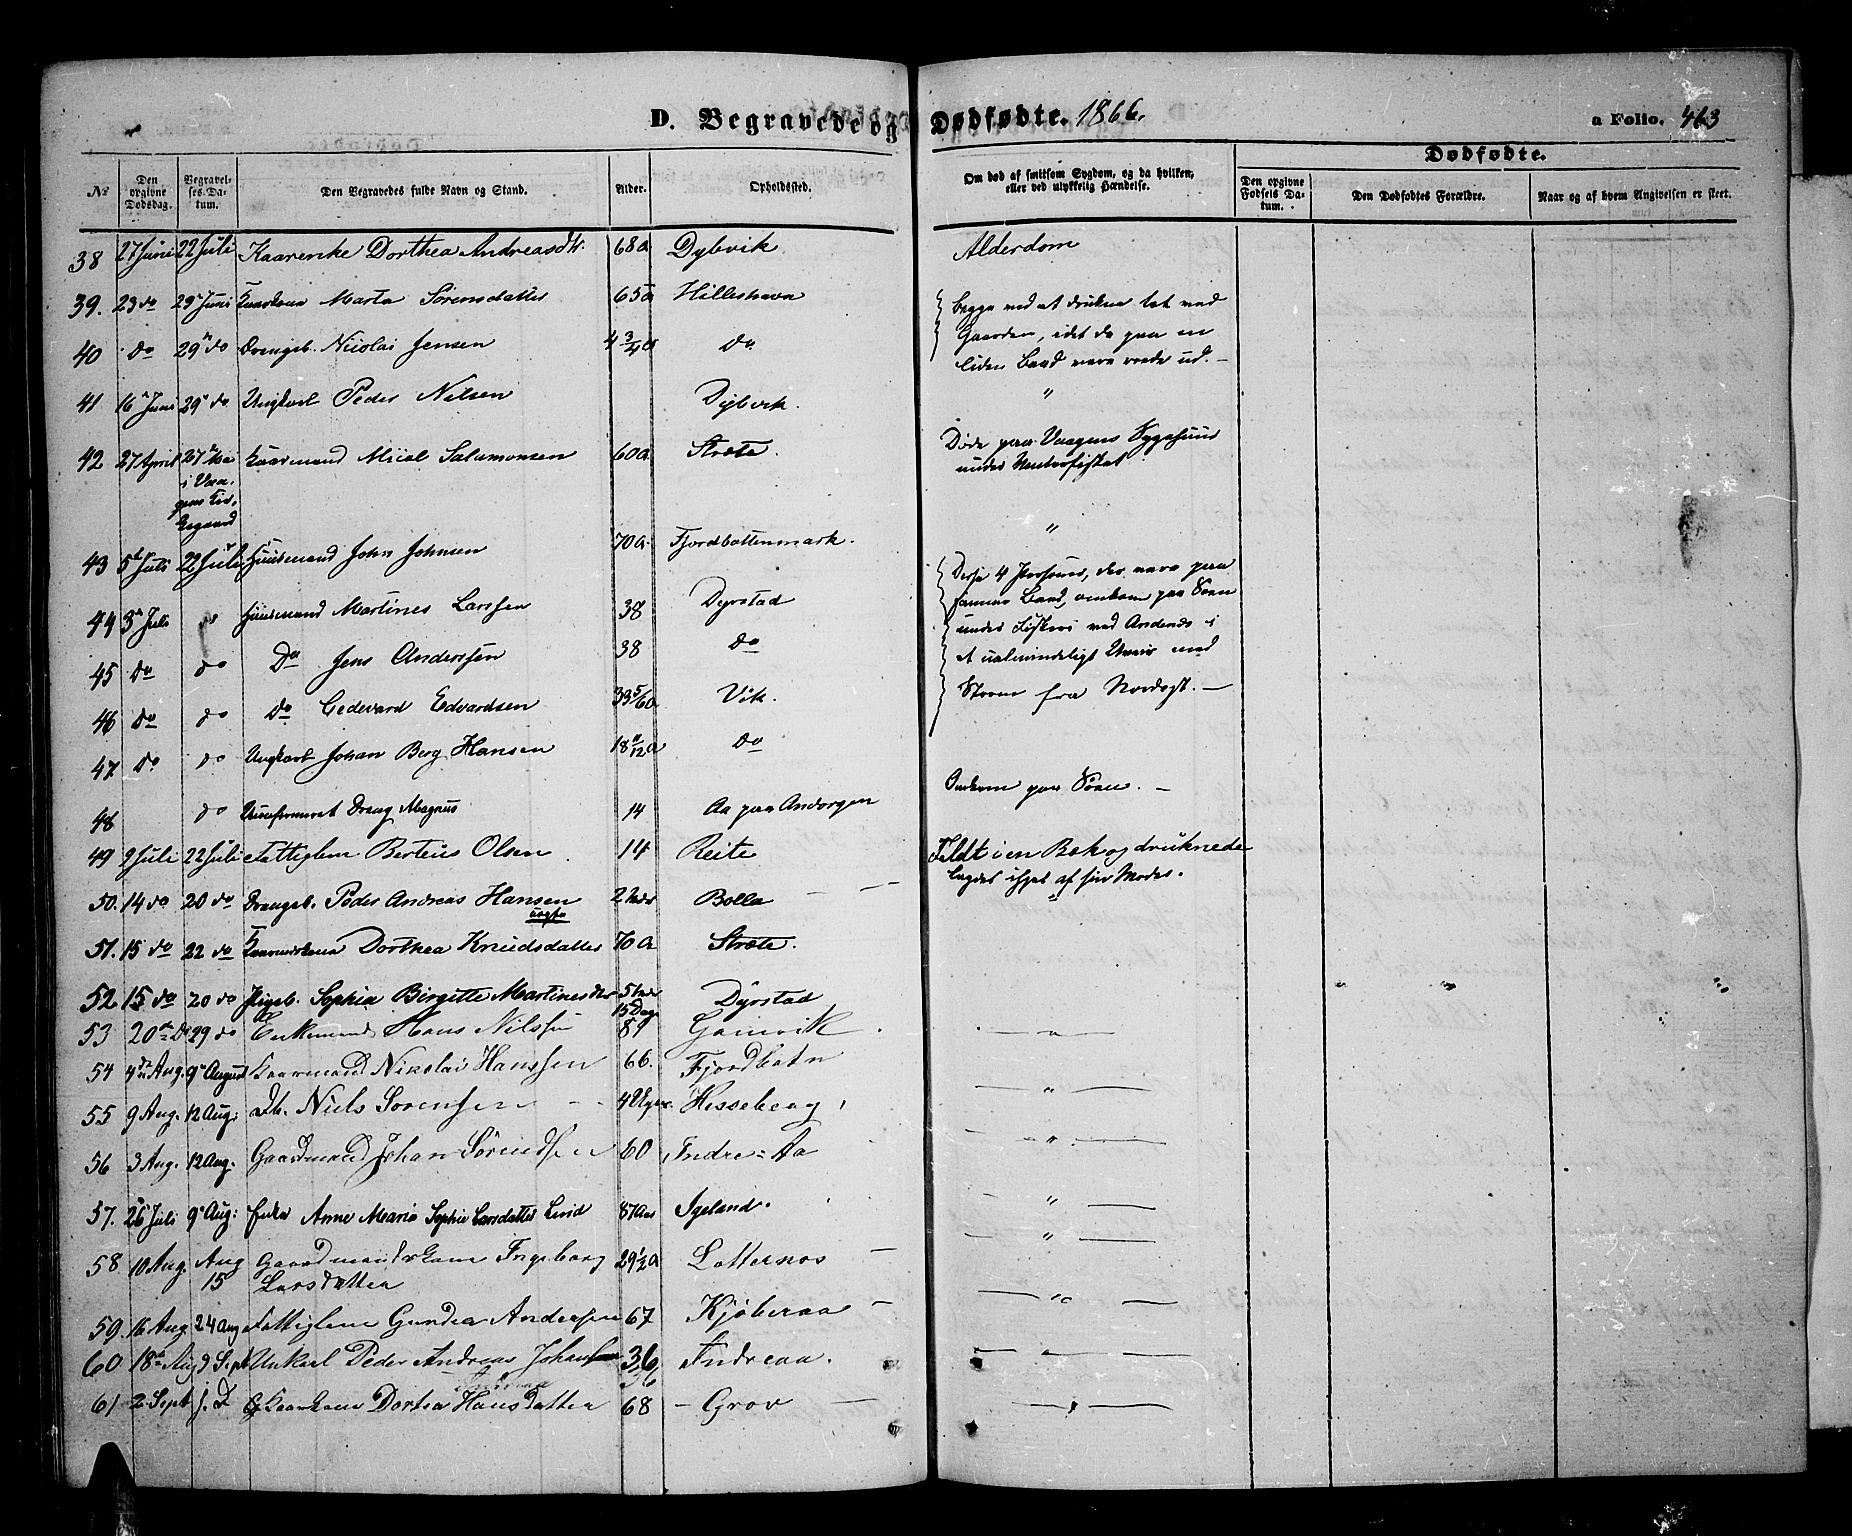 D. Begravede og Dødfødte. 1866. a Folio. 463
Dødfødte.
No
Den opgivne Dødsdag.
Begravelses-Datum.
Den Begravedes fulde Navn og Stand.
Alder.
Opholdssted.
Om død af smitsom Sygdom, og da hvilken, eller ved ulykkelig Hændelse.
Den opgivne Fødsels Datum.
Den Dødfødtes Forældre.
Naar og af hvem Angivelsen er skeet.
38 27 Juni 22 Juli Kaarenke Dorthea Andreasdtr. 68 a Dybvik Alderdom
39. 23 do 29 Juni Marta Sørensdatter 65 a Hilleshavn begge ved at drukne tæt ved
40 do 29 do Drengeb. Nicolai Jensen 4 3/4 a do Gaarden, idet de paa en
liden Baad vare roede ud. —
41 16 Juni 29 do Ungkarl Peder Nilsen Dybvik. "
42 27 April 27 Gaardmand Miiol Salamonsen 60 a. Stræte. Døde paa Vaagens Sygehuus
under Vinterfisket
i Vaa-
gens Kir-
kegaard
43 5 Juli 22 Juli Huusmand John Johnsen 70 a. Fjordbottenmark. "
44 3 Juli " Huusmand Martines Larssen 38 Dyrstad
Disse 4 Personer, der vare paa
samme Baad, omkom paa Søen
45 do do Do Jens Anderssen 38 do under Fiskeri ved Andenes i
et ualmindeligt Uveir med
46 do do do Gedevard Edvardsen 33 5/6 a Vik. Storm fra Nordost. —
47 do do Ungkarl Johan Berg Hansen 18 11/12 a do
48 do Uconfirmeret Dreng Magnus 14 Aa paa Andorgen Omkom paa Søen. —
49 9 Juli 22 Juli Fattiglem Berteus Olsen 14 Reite Feldt i en Bæk og druknede
50. 14 do 20 do Drengeb. Peder Andreas Hansen 2 Bolla — — lagdes ihjel af sin Moder.
51. 15 do 22 do Dorthea Knudsdatter 70 a Stræte.
52 15 do 20 do Pigeb. Sophia Birgitte Martinesdtr 5
15 Dage Dyrstad " " "
53 20 do 29 do Enkemand Hans Nilssen 89 Gamvik. — " —
54 4 Aug. 9 August Gaarmand Nikolai Hanssen 66. Fjordbotn — " —
55 9 Aug. 12 Aug: Db. Niels Sørensen 4 Uger. Hesseberg, — " —
56 3 Aug. 12 Aug. Gaardmand Johan Sørendsen 60 Indre-Aa
57. 26 Juli 9 Aug: Enke Anne Maria Sophie Larsdatter Lind 87 Aar Igeland. — " —
58 10 Aug. Aug 15 Gaardmandskone Ingeborg
Larsdatter 29 1/2 a Lotternes — — " —
59. 16 Aug 24 Aug Fattiglem Gundea Andersen 67 Kjøberaa — — " —
60 18 Aug 9 Sept Unkarl Peder Andreas Johansen 36
36 Indreaa. — " —
61 2 Sept s. D Gaarkone Dortea Hansdatter 68 – Grov — — " —